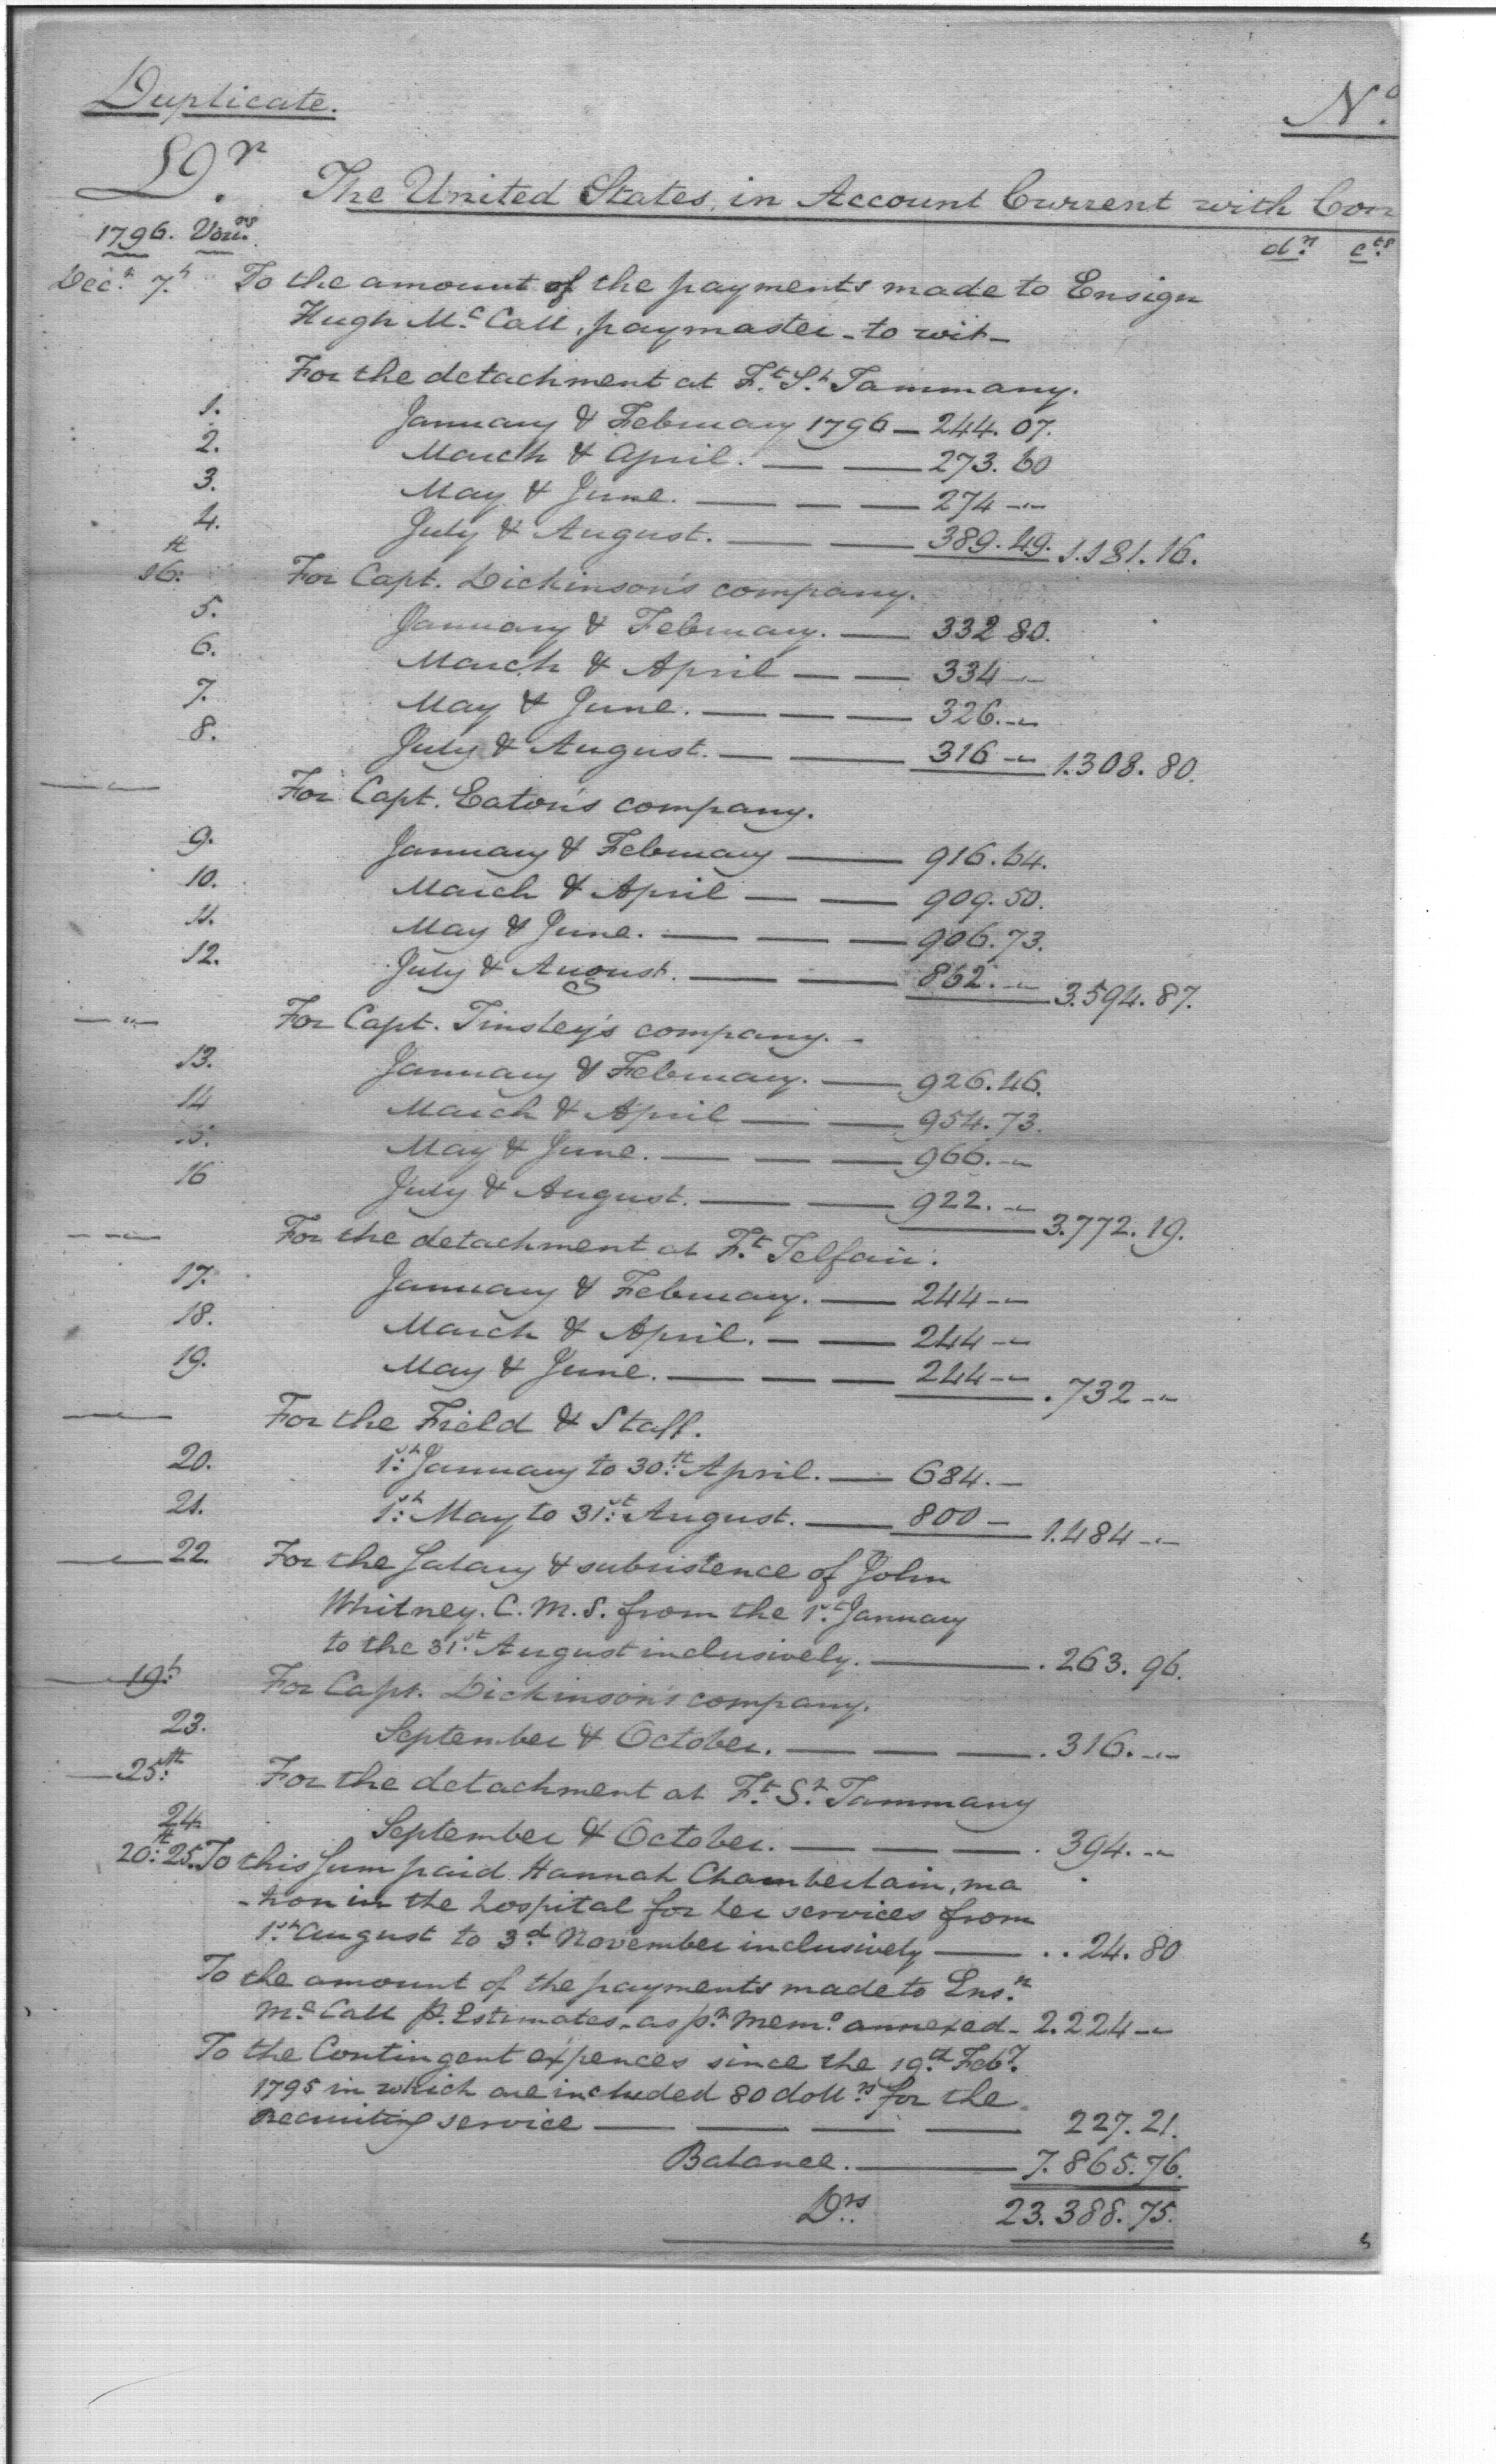 Duplicate.
No.
Dr. The United States, in Account Current with Con
1796. Vours.
drs. cts.
Decr. 7th. To the amount of the payments made to Ensign
Hugh McCall, paymaster - to wit -
For the detachment at Ft. St. Tammany.
1. January & February 1796 — 244.07.
2. March & April. — — 273.60
3. May & June. — — — 274 -"-
4. July & August. — — 389.49. 1.181.16.
16th. For Capt. Dickinson's company.
5. January & February. — 332 80.
6. March & April — — 334 -"-
7. May & June. — — — 326. -"-
8. July & August. — — 316 -"- 1.308.80.
—"— For Capt. Eaton's company.
9. January & February — 916.64.
10. March & April — — 909.50.
11. May & June. — — — 906.73.
12. July & August. — — 862. -"- 3.594.87.
—"— For Capt. Tinsley's company. -
13. January & February. — 926.46.
14 March & April — — 954.73.
15. May & June. — — — 966. -"-
16 July & August. — — 922. -"- 3.772.19.
—"— For the detachment at Ft. Telfair.
17. January & February. — 244 -"-
18. March & April. — — 244 -"-
19. May & June. — — — 244 -"- .732 -"-
—"— For the Field & Staff.
20. 1st. January to 30th. April. — 684. -
21. 1st. May to 31st. August. — 800 - 1.484 -"-
—"— 22. For the Salary & subsistence of John
Whitney. C. M. S. from the 1st. January
to the 31st. August inclusively. — .263.96.
—19th. For Capt. Dickinson's company.
23. September & October. — — — .316. -"-
—25th. For the detachment at Ft. St. Tammany
24. September & October. — — — .394. -"-
20th. 25. To this sum paid Hannah Chamberlain, ma
-tron in the hospital for her services from
1st. August to 3d. November inclusively — ..24.80
To the amount of the payments made to Ensn.
McCall p. Estimates, as pr. Memo. annexed - 2.224 -"-
To the Contingent expences since the 19th. Feby.
1795 in which are included 80 dollrs. for the
Recruiting service — — — — 227.21.
Balance. — 7.865.76.
Drs. 23.388.75.